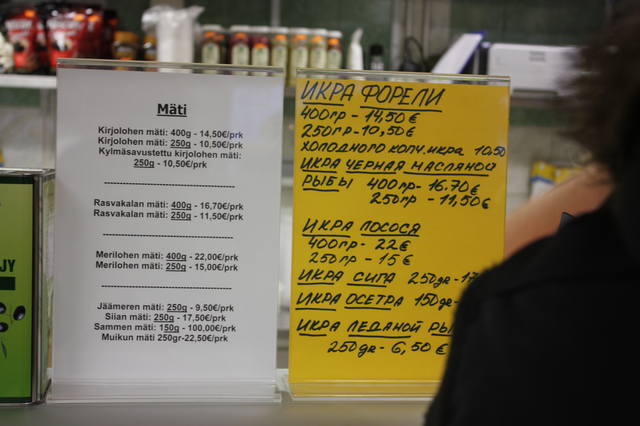 Mäti
Kirjolohen mäti: 400g - 14,50€/prk
Kirjolohen mäti: 250g - 10,50€/prk
Kylmäsavustettu kirjolohen mäti:
250g - 10,50€/prk
Rasvakalan mäti: 400g - 16,70€/prk
Rasvakalan mäti: 250g - 11,50€/prk
Merilohen mäti: 400g - 22,00€/prk
Merilohen mäti: 250g - 15,00€/prk
Jäämeren mäti: 250g - 9,50€/prk
Siian mäti: 250g - 17,50€/prk
Sammen mäti: 150g - 100,00€/prk
Muikun mäti 250gr-22,50€/prk
ИКРА ФОРЕЛИ
400гр - 14,50 €
250гр - 10,50€
ХОЛОДНОГО КОПЧ. ИКРА 10,50
ИКРА ЧЕРНАЯ МАСЛЯНОЙ
РЫБЫ 400гр - 16.70 €
250гр - 11,50€
ИКРА ЛОСОСЯ
400гр - 22€
250гр - 15€
ИКРА СИГА 250gr - 17
ИКРА ОСЕТРА 150gr -
ИКРА ЛЕДАНОЙ РЫ
250gr - 6,50€
JY